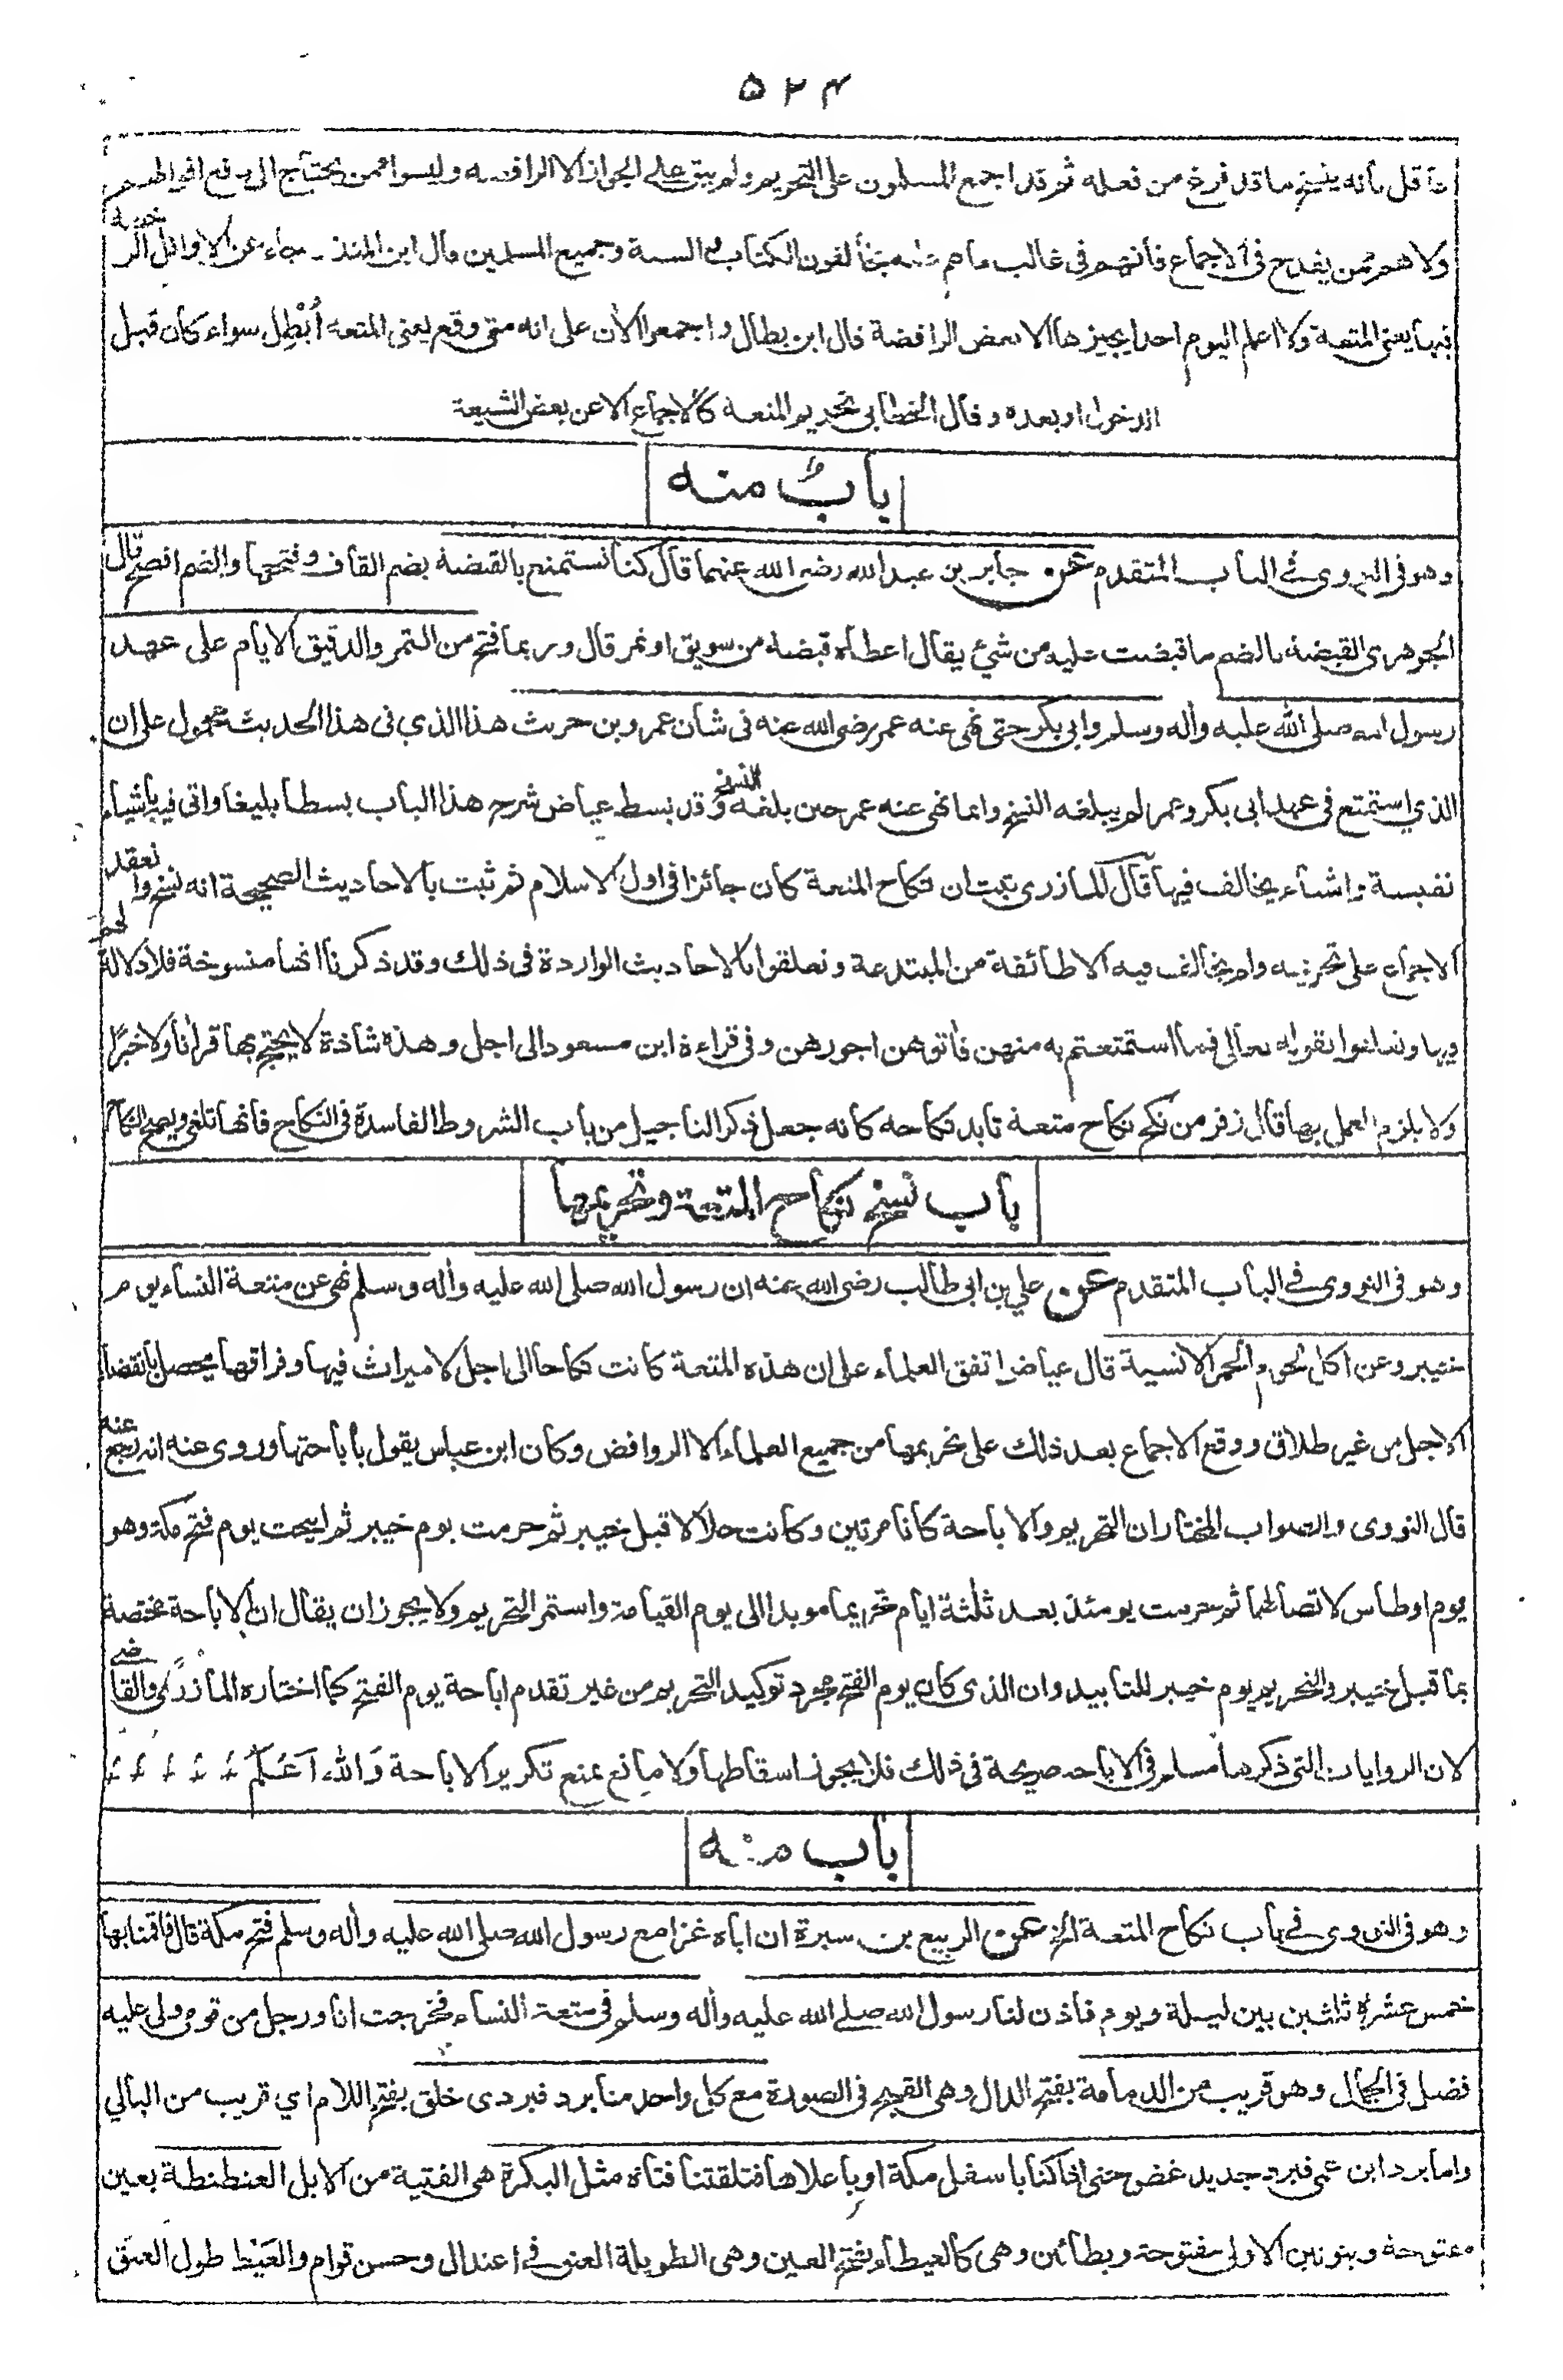 ٥٢٤
ما قل بأنه ينسخ ما قد فرغ من فعله ثم قد اجمع المسلمون على التحريم ولم يبق على الجواز الا الرافضه وليسوا ممن يحتاج الى دفع اقوالهم
ولا هم ممن يقدح فى الاجماع فأنهم فى غالب ما هم عليه مخالفون الكتاب و السنة وجميع المسلمين قال ابن المنذر جاء عن الاوائل الرخصة
فيها يعنى المتعة ولا اعلم اليوم احدا يجيزها الا بعض الرافضة قال ابن بطال واجمعوا الآن على انه متى وقع يعنى المتعه أُبْطِل سواء كان قبل
الدخول او بعده وقال الخطابى تحريم المتعة كالاجماع الا عن بعض الشيعة
بابٌ منه
وهو فى النووى فى الباب المتقدم عن جابر بن عبد الله رضى الله عنهما قال كنا نستمتع بالقبضة بضم القاف وفتحها والضم افصح قال
الجوهرى القبضة بالضم ما قبضت عليه من شئ يقال اعطاه قبضة من سويق او تمر قال وربما فتح من التمر والدقيق الايام على عهد
رسول الله صلى الله عليه وأله وسلم وابى بكر حتى نهى عنه عمر رضى الله عنه فى شأن عمرو بن حريث هذا الذي فى هذا الحديث محمول على ان
الذي استمتع فى عهد ابى بكر وعمر لم يبلغه النسخ وانما نهى عنه عمر حين بلغه النسخ وقد بسط عياض شرح هذا الباب بسطا بليغا واتى فيه بأشياء
نفيسة واشياء يخالف فيها قال المازرى ثبت ان نكاح المتعة كان جائزا فى اول الاسلام ثم ثبت بالاحاديث الصحيحة انه نسخ وانعقد
الاجماع على تحريمه ولم يخالف فيه الا طائفة من المبتدعة وتعلقوا بالاحاديث الواردة فى ذلك وقد ذكرنا انها منسوخة فلا دلالة لهم
فيها وتعلقوا بقوله تعالى فما استمتعتم به منهن فأتوهن اجورهن وفى قراءة ابن مسعود الى اجل وهذه شاذة لا يحتج بها قرأنا ولا خبرًا
ولا يلزم العمل بها قال زفر من نكح نكاح متعة تابد نكاحه كانه جعل ذكر التاجيل من باب الشروط الفاسدة فى النكاح فانها تلغى ويصح النكاح
باب نسخ نكاح المتعة وتحريمها
وهو فى النووى فى الباب المتقدم عن علي بن ابى طالب رضى الله عنه ان رسول الله صلى الله عليه وأله وسلم نهى عن متعة النساء يوم
خيبر وعن اكل لحوم الحمر الانسية قال عياض اتفق العلماء على ان هذه المتعة كانت نكاحا الى اجل لا ميراث فيها وفراقها يحصل بانقضاء
الاجل من غير طلاق ووقع الاجماع بعد ذلك على تحريمها من جميع العلماء الا الروافض وكان ابن عباس يقول بأباحتها وروى عنه انه رجع عنه
قال النووى والصواب المختار ان التحريم والاباحة كانا مرتين وكانت حلالا قبل خيبر ثم حرمت يوم خيبر ثم ابيحت يوم فتح مكة وهو
يوم اوطاس لاتصالهما ثم حرمت يومئذ بعد ثلثة ايام تحريما موبدا الى يوم القيامة واستمر التحريم ولا يجوز ان يقال ان الاباحة مختصة
بما قبل خيبر والتحريم يوم خيبر للتابيد وان الذى كان يوم الفتح مجرد توكيد التحريم من غير تقدم اباحة يوم الفتح كما اختاره المازرى والقاضى
لان الروايات التى ذكرها مسلم فى الاباحه صريحة فى ذلك فلا يجوز اسقاطها ولا مانع يمنع تكرير الاباحة وَالله اَعْلَمُ
باب منه
وهو فى النووى فى باب نكاح المتعة الخ عن الربيع بن سبرة ان اباه غزا مع رسول الله صلى الله عليه وأله وسلم فتح مكة قال فاقمنا بها
خمس عشرة ثلثين بين ليلة ويوم فأذن لنا رسول الله صلى الله عليه وأله وسلم فى متعة النساء فخرجت انا ورجل من قومى ولى عليه
فضل فى الجمال وهو قريب من الدمامة بفتح الدال وهى القبح فى الصورة مع كل واحد منا برد فبردى خلق بفتح اللام اي قريب من البالي
واما برد ابن عمى فبرد جديد غض حتى اذا كنا باسفل مكة او باعلاها فتلقتنا فتاة مثل البكرة هى الفتية من الابل العنطنطة بعين
مفتوحة وبنونين الاولى مفتوحة وبطائين وهى كالعيطاء بفتح العين وهى الطويلة العنق فى اعتدال وحسن قوام والعَيَط طول العنق